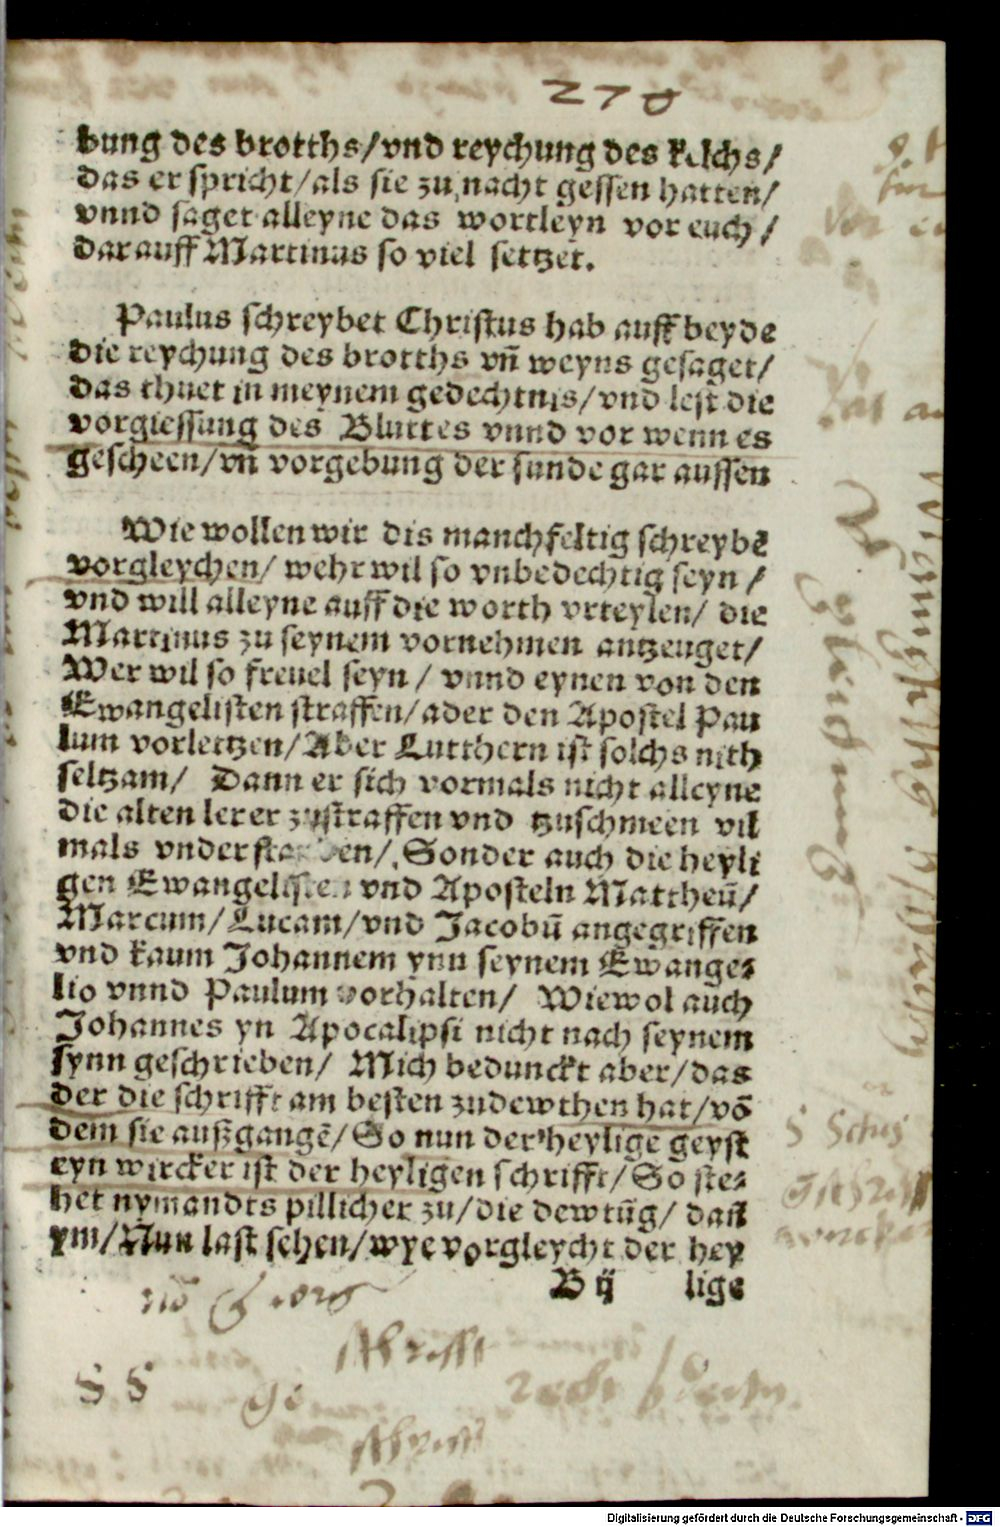 270
bung des brotths/vnd reychung des kelchs/
das er spricht/als sie zu nacht gessen hatten/
vnnd saget alleyne das wortleyn vor euch/
darauff Martinus so viel settzet.
Paulus schreybet Christus hab auff beyde
die reychung des brotths vn̄ weyns gesaget/
das thuet in meynem gedechtnis/vnd lest die
vorgiessung des Bluttes vnnd vor wenn es
gescheen/vn̄ vorgebung der sunde gar aussen
Wie wollen wir dis manchfeltig schreybē
vorgleychen/ wehr wil so vnbedechtig seyn/
vnd will alleyne auff die worth vrteylen/ die
Martinus zu seynem vornehmen antzeuget/
Wer wil so freuel seyn/ vnnd eynen von den
Ewangelisten straffen/ader den Apostel Pau
lum vorlettzen/Aber Lutthern ist solchs nith
seltzam/ Dann er sich vormals nicht alleyne
die alten lerer zustraffen vnd tzuschmeen vil
mals vnderstanden/ Sonder auch die heyli
gen Ewangelisten vnd Aposteln Mattheū/
Marcum/Lucam/vnd Jacobū angegriffen
vnd kaum Johannem ynn seynem Ewange⸗
lio vnnd Paulum vorhalten/ Wiewol auch
Johannes yn Apocalipsi nicht nach seynem
synn geschrieben/ Mich bedunckt aber/das
der die schrifft am besten zudewthen hat/vō
dem sie außgangē/So nun der heylige geyst
eyn wircker ist der heyligen schrifft/So ste⸗
het nymandts pillicher zu/die dewtūg/ dan̄
ym/Nun last sehen/wye vorgleycht der hey
B ij lige
S S
Digitalisierung gefördert durch die Deutsche Forschungsgemeinschaft - DFG